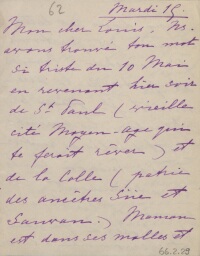 62
Mardi 15.
Mon cher Louis, Ns.
avons trouvé ton mot
si triste du 10 Mai
en revenant hier soir
de St Paul (vieille
cité Moyen-age qui
te feront rêver) et
de la Colle (patrie
des ancêtres et
.) Maman
est dans ses malles et
66.2.29